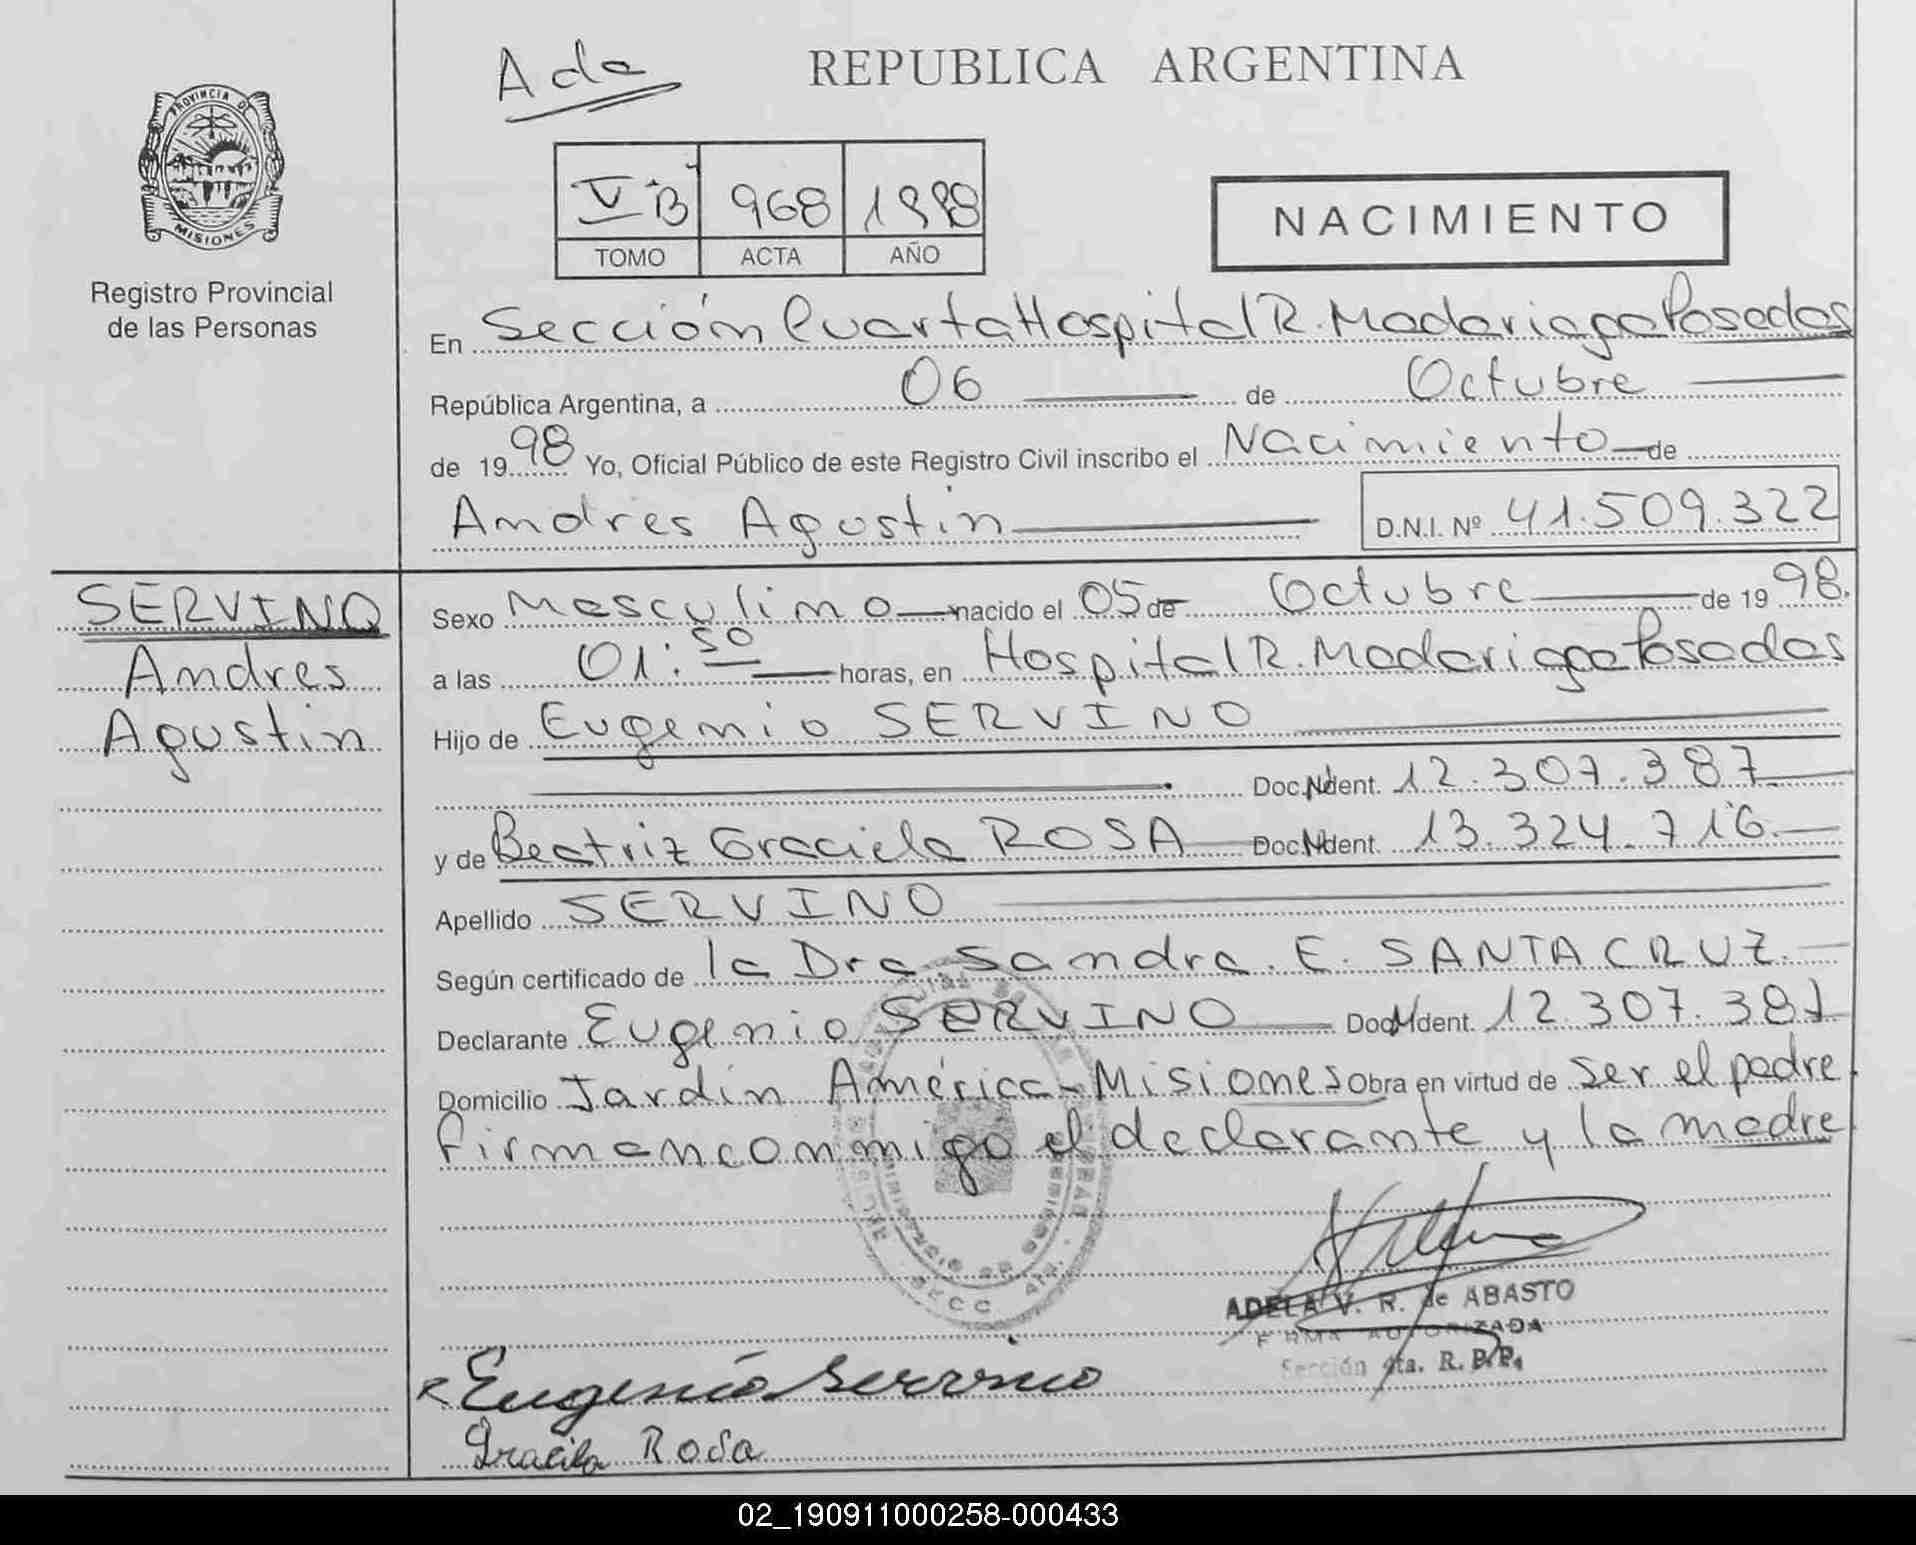 Ada
REPUBLICA ARGENTINA
PROVINCIA DE
MISIONES
Registro Provincial
de las Personas
V B 968 1998
TOMO ACTA AÑO
NACIMIENTO
En Sección Cuarta Hospital R. Madariaga Posadas
República Argentina, a 06 de Octubre
de 1998 Yo, Oficial Público de este Registro Civil inscribo el Nacimiento de
Andres Agustin
D.N.I. Nº 41.509.322
SERVINO
Andres
Agustin
Sexo Masculino nacido el 05 de Octubre de 1998.
a las 01:50 horas, en Hospital R. Madariaga Posadas
Hijo de Eugenio SERVINO
Doc. Ident. 12.307.387
y de Beatriz Graciela ROSA Doc. Ident. 13.324.716
Apellido SERVINO
Según certificado de la Dra Sandra. E. SANTACRUZ.
Declarante Eugenio SERVINO Doc. Ident. 12.307.387
Domicilio Jardín América - Misiones Obra en virtud de ser el padre
firman conmigo el declarante y la madre
ADELA V. R. de ABASTO
FIRMA AUTORIZADA
Sección 4ta. R. P. P.
Eugenio Servino
Graciela Rosa
02_190911000258-000433